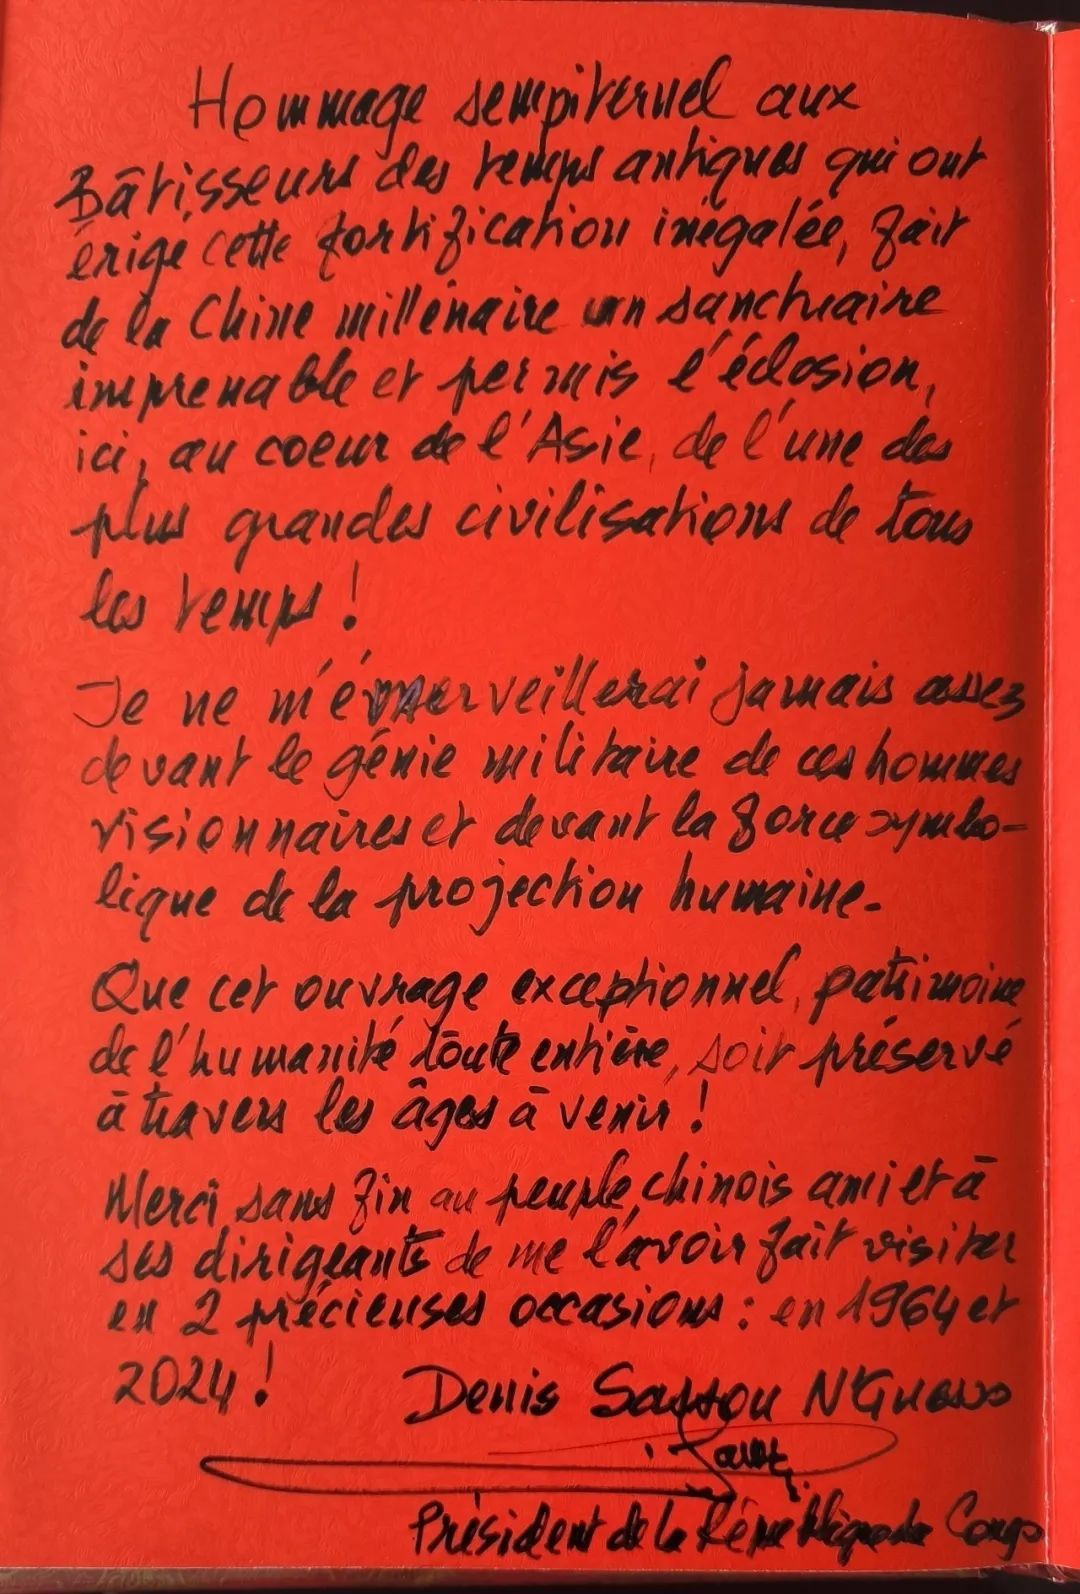 Hommage sempiternel aux
Bâtisseurs des temps antiques qui ont
érigé cette fortification inégalée, fait
de la Chine millénaire un sanctuaire
imprenable et permis l'éclosion,
ici, au coeur de l'Asie, de l'une des
plus grandes civilisations de tous
les temps !
Je ne m'émerveillerai jamais assez
devant le génie militaire de ces hommes
visionnaires et devant la force symbo-
lique de la projection humaine.
Que cet ouvrage exceptionnel, patrimoine
de l'humanité toute entière, soit préservé
à travers les âges à venir !
Merci sans fin au peuple chinois ami et à
ses dirigeants de me l'avoir fait visiter
en 2 précieuses occasions : en 1964 et
2024 !
Denis Sassou N'Guesso
Président de la République du Congo